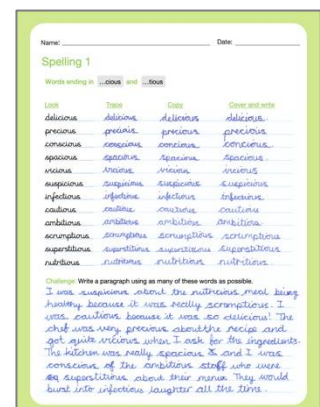 Name: Date:
Spelling 1
Words ending in ...cious and ...tious
Look Trace Copy Cover and write
delicious delicious delicious delicious.
precious precious precious precious
conscious conscious concious concious.
spacious spacious spacious spacious.
vicious vicious vicious vicious
suspicious suspicious suspicious suspicious
infectious infectious infectious infectious.
cautious cautious cautious cautiou
ambitious ambitious ambitious ambitious.
scrumptious scrumptious scrumptious scrumptious
superstitious superstitious superstitious superstitious.
nutritious nutritious nutritious nutritious
Challenge Write a paragraph using as many of these words as possible.
I was suspicious about the nutricious meal being
healthy because it was really scromptious. I
was cautious because it was so delicious! The
chef was very precious about the recipe and
got quite vicious when I ask for the ingredients.
The kitchen was really spacious & and I was
conscious of the ambitious staff who were
superstitious about their menu. They would
burst into infectious laughter all the time.